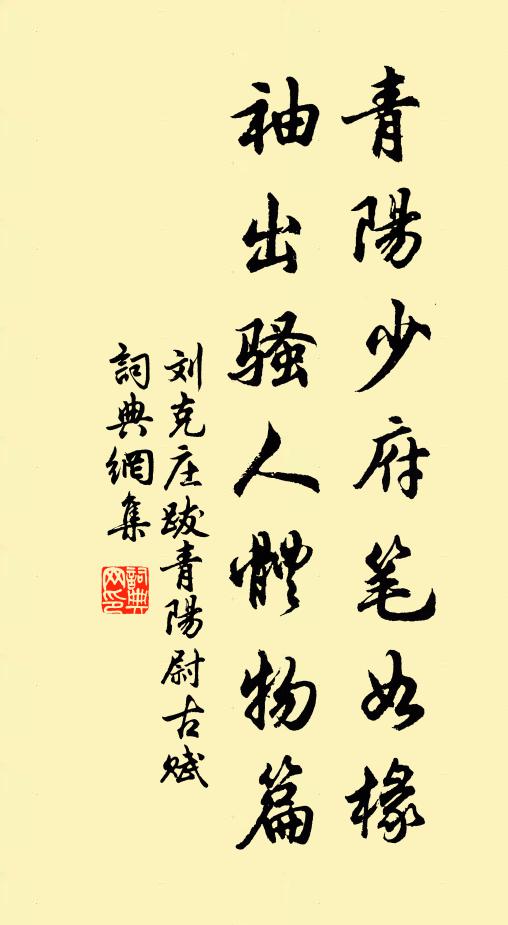 青陽少府笔如椽
袖出骚人體物篇
刘克庄跋青陽尉古赋
詞典網集
詞典网印